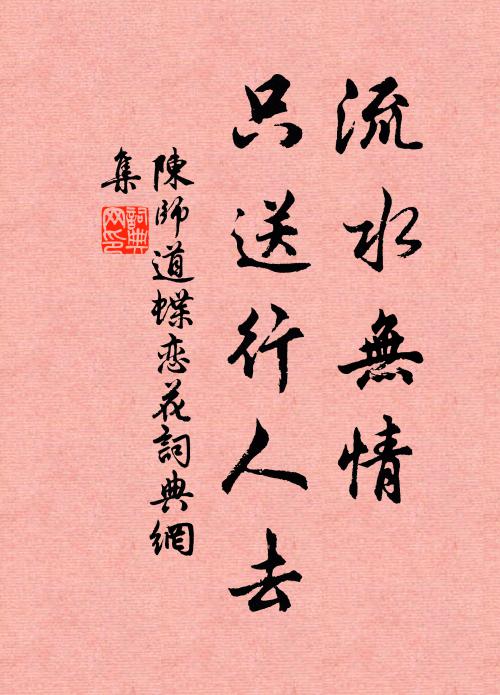 流水無情
只送行人去
陳師道蝶恋花詞典網
集
詞典網印